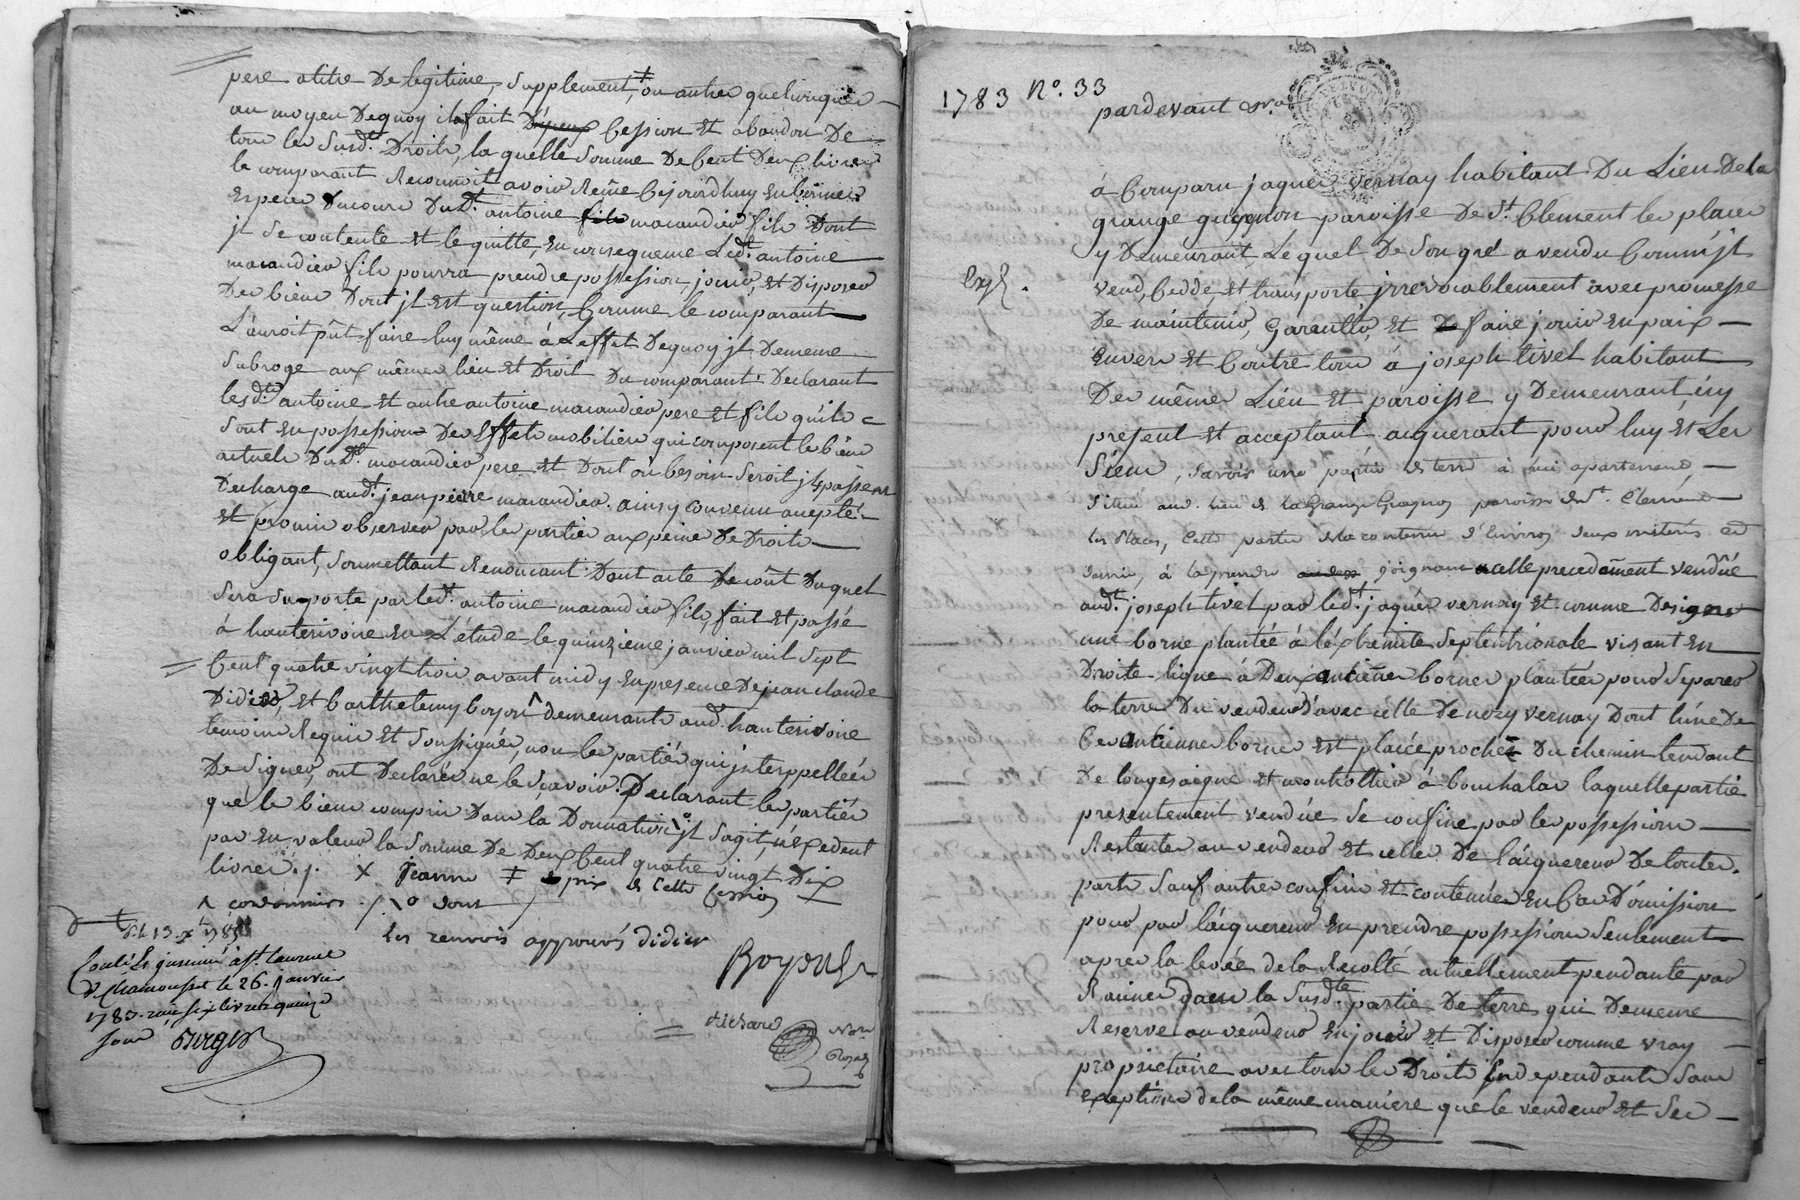 pere a titre De legitime, Supplement, ‡ ou autres quelconques
au moyen Dequoy il fait Cession Et abandon De
tous les Susd.ts Droits, la quelle Somme De Cent Deux livres
le comparant Reconnoit avoir Reçue Cejourdhuy En bonnes
Especes Ducours Dud.t antoine macandier fils Dont
jl Se contente Et le quitte, En consequence Led.t antoine
macandier fils pourra prendre possession, jouir, Et Disposer
Des biens Dont jl Est question, Comme le comparant
L'auroit pût faire luy même à L'effet Dequoy jl Demeure
Subrogé aux mêmes lieu Et Droit Du comparant. Declarant
lesd.ts antoine Et autre antoine macandier pere Et fils qu'ils
Sont En possession Des Effets mobiliers qui composent les biens
actuels Dud.t macandier pere Et Dont où besoin Seroit jls passent
Decharge aud.t jean pierre macandier. ainsy convenu accepté
Et promis observer par les parties aux peines De Droits
obligeant, Soumettant Renonçant Dont acte le coût Duquel
Sera Suporté par led.t antoine macandier fils, fait Et passé
à hauterivoire En L'étude le quinzieme janvier mil Sept
Cent quatre vingt trois avant midy En presence De jean claude
Didier, Et barthelemy boyon ^ demeurants aud. hauterivoire
temoins Requis Et Soussignés, non les parties qui jnterpellées
De Signer, ont Declarées ne le Scavoir. Declarant les parties
que les biens compris Dans la Donnation \o jl Sagit, n'Excedent
pas En valeur la Somme De Deux Cent quatre vingt Dix
livres ./. X Jeanne ‡ prix de Cette Cession
^ cordonniers ./. \o dont
les renvois approuvés didier
Boyon
Richard
Not. Royal
Coulé Et jnsinué à St. Laurent
D Chamousset le 26. janvier
1783. reçu six livres quinze
sous
1783 N.o 33
pardevant
à Comparu jaques vernay habitant Du Lieu De la
grange gragnon paroisse De S.t Clement les places
y Demeurant Lequel De Son gré a vendu Comm'jl
Exp.
vend, Cedde, Et transporte jrrevocablement avec promesse
De maintenir, Garantir, Et faire jouir En paix
Envers Et Contre tous, à joseph tivel habitant
Des mêmes Lieu Et paroisse y Demeurant icy
present Et acceptant acquerant pour luy Et Les
Siens, Savoir une partie de terre à lui apartenante
Située aud. lieu de la Grange Gragnon paroisse de St. Clement
les Places, Cette partie de la contenue d'Environ deux meterés Et
demie, à la prendre joignant acelle precedament vendüe
aud.t joseph tivel par led.t jaques vernay Et comme Designe
une borne plantée à l'éxtremité Septentrionale visant En
Droite ligne à Deux anciennes bornes plantées pour Separer
la terre Du vendeur d'avec celle De nozy vernay Dont l'une De
Ces anciennes bornes Est placée proche Du chemin tendant
De longesaigne Et montrottier à bouchalas laquelle partie
presentement vendüe Se confine par les possessions
Restantes au vendeur Et celles De l'acquereur De toutes
parts Sauf autres confins Et contenues En Cas D'omission
pour par l'acquereur En prendre possession Seulement
apres la levée de la Recolte actuellement pendante par
Racines dans la Susd.te partie De terre qui Demeure
Reservé au vendeur En jouir Et Disposer comme vray
propriétaire avec tous les Droits jndependants Sans
Exeption de la même maniere que le vendeur Et Ses